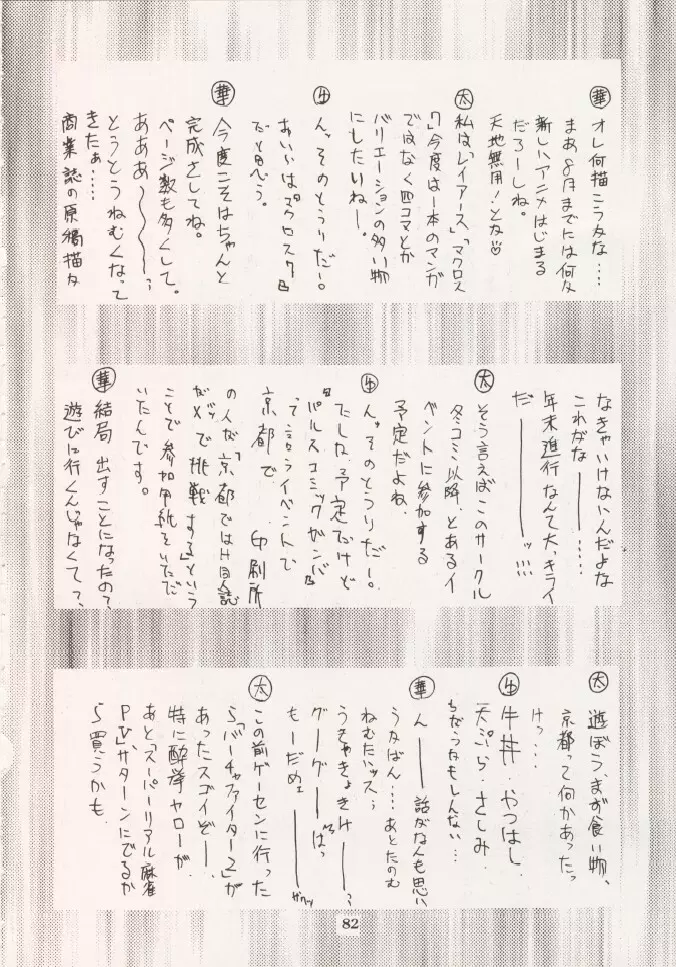 華 オレ何描こうかな……
まあ8月までには何か
新しいアニメはじまる
だろーしね。
天地無用!とか♡
太 私は「レイアース」「マクロス
7」今度は一本のマンガ
ではなく四コマとか
バリエーションの多い物
にしたいねー。
牛 んっそのとうりだー。
あいつは『マクロス7』
だと思う。
華 今度こそはちゃんと
完成さしてね。
ページ数も多くして。
あああ〜〜〜〜
とうとうねむくなって
きたぁ……
商業誌の原稿描か
なきゃいけないんだよな
これがな———……
年末進行なんて大、キライ
だ————ッ!!!
太 そう言えばこのサークル
冬コミ以降、とあるイ
ベントに参加する
予定だよね
牛 んっそのとうりだー。
たしか予定だけど
『パルスコミックガンバ』
って言うイベントで
京都で 印刷所
の人が「京都ではH同人誌
がダメで挑戦する」という
ことで参加用紙をいただ
いたんです。
華 結局 出すことになったの?
遊びに行くんじゃなくて?、
太 遊ぼう、まず食い物、
京都って何かあったっ
けっ…
牛 牛丼、やつはし、
天ぷら、さしみ、
ちがうかもしんない…
華 ん——話がなんも思い
うかばん…あとたのむ
ねむたいッス
うきゃきょきけ———
グーグー——ぱっ
もーだめェ————
太 この前ゲーセンに行った
ら「バーチャファイター2」が
あったスゴイぞ——
特に酔拳ヤローが
あと「スーパーリアル麻雀
PV」サターンにでるか
ら買うかも
82